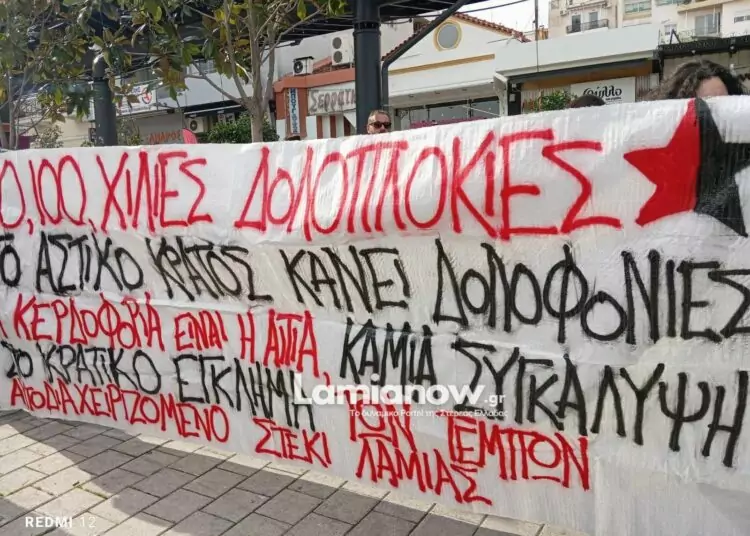 0, 100, ΧΙΛΙΕΣ ΔΟΛΟΠΛΟΚΙΕΣ
ΤΟ ΑΣΤΙΚΟ ΚΡΑΤΟΣ ΚΑΝΕΙ ΔΟΛΟΦΟΝΙΕΣ
Η ΚΕΡΔΟΦΟΡΙΑ ΕΙΝΑΙ Η ΑΙΤΙΑ, ΚΑΜΙΑ ΣΥΓΚΑΛΥΨΗ
ΣΤΟ ΚΡΑΤΙΚΟ ΕΓΚΛΗΜΑ ΤΩΝ ΤΕΜΠΩΝ
ΑΥΤΟΔΙΑΧΕΙΡΙΖΟΜΕΝΟ ΣΤΕΚΙ ΛΑΜΙΑΣ
Lamianow.gr
Το δυναμικό Portal της Στερεάς Ελλάδας
REDMI 12